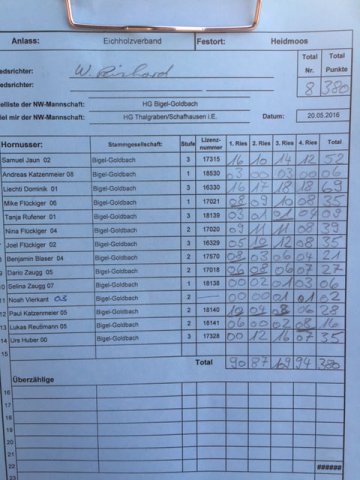 Anlass: Eichholzverband Festort: Heidmoos
Total Nr. Total Punkte
8 380
edsrichter: W.
edsrichter:
elliste der NW-Mannschaft: HG Bigel-Goldbach
iel mir der NW-Mannschaft: HG Thalgraben/Schafhausen i.E. Datum: 20.05.2016
Hornusser: Stammgesellschaft: Stufe Lizenz-nummer 1. Ries 2. Ries 3. Ries 4. Ries Total
Samuel Jaun 02 Bigel-Goldbach 3 17315 16 10 14 12 52
Andreas Katzenmeier 08 Bigel-Goldbach 1 18530 03 00 03 00 06
Liechti Dominik 01 Bigel-Goldbach 3 16330 16 17 18 18 69
Mike Flückiger 06 Bigel-Goldbach 1 17021 08 09 10 08 35
Tanja Rufener 01 Bigel-Goldbach 3 18139 03 01 01 04 09
Nina Flückiger 04 Bigel-Goldbach 2 17020 09 11 11 08 39
Joel Flückiger 02 Bigel-Goldbach 3 16329 05 10 12 08 35
8 Benjamin Blaser 04 Bigel-Goldbach 2 17570 08 03 06 04 21
9 Dario Zaugg 05 Bigel-Goldbach 2 17018 06 08 06 07 27
10 Selina Zaugg 07 Bigel-Goldbach 1 18138 00 02 01 03 06
11 Noah Vierkant 03 Bigel-Goldbach 2 — 00 00 01 01 02
12 Paul Katzenmeier 05 Bigel-Goldbach 2 18140 10 04 08 06 28
13 Lukas Reußmann 05 Bigel-Goldbach 2 18141 06 00 02 08 16
14 Urs Huber 00 Bigel-Goldbach 3 17328 00 12 16 07 35
15
Total 90 87 109 94 380
Überzählige
16
17
18
19
20
21
22
23 ######